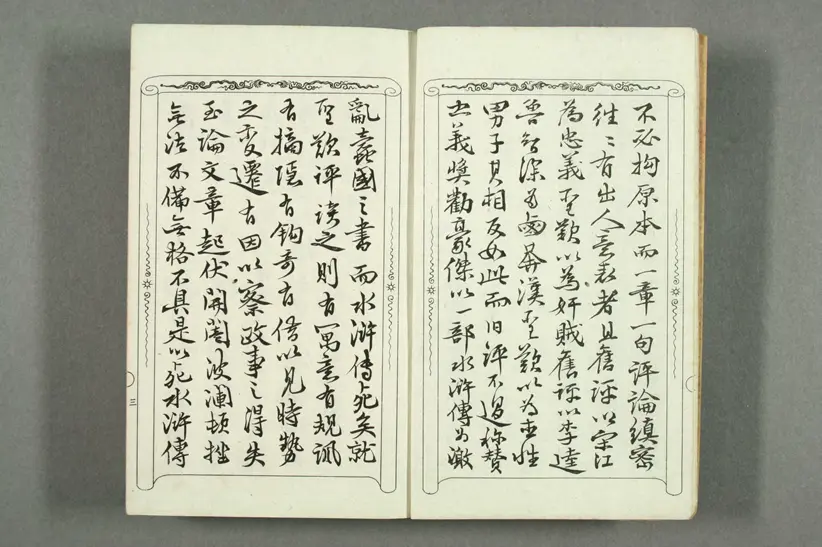 不必拘原本而一章一句評論縝密
往〻有出人意表者且舊評以宋江
為忠義聖歎以為奸賊舊評以李逵
魯智深為鹵莽漢聖歎以為直性
男子其相反如此而旧評不過称賛
忠義奬勸豪傑以一部水滸傳為激
亂蠹國之書而水滸傳死矣就
聖歎評読之則有寓意有規諷
有摘隠有鈎奇有借以見時勢
之変遷有因以察政事之得失
至論文章起伏開闔波瀾頓挫
無法不備無格不具是以死水滸傳
三